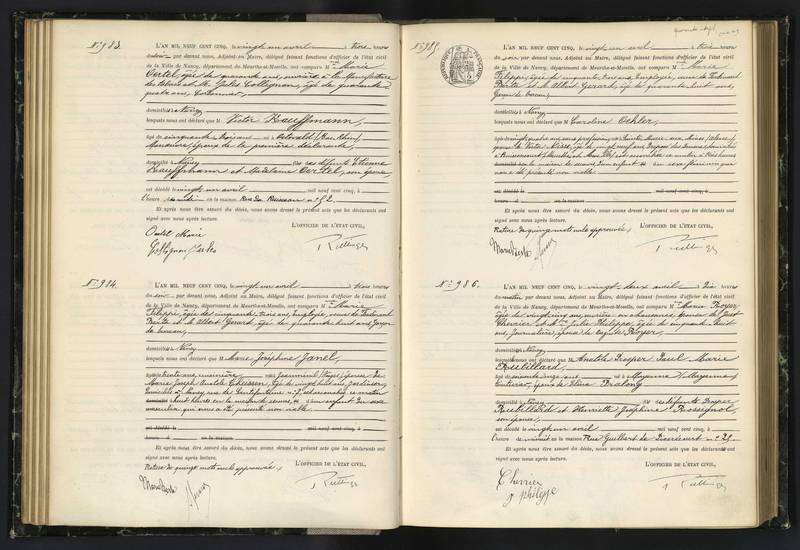 N° 983.
L'AN MIL NEUF CENT CINQ, le vingt un avril à trois heures
du soir par devant nous, Adjoint au Maire, délégué faisant fonctions d'officier de l'état civil
de la Ville de Nancy, département de Meurthe-et-Moselle, ont comparu M Marie
Oertel, âgée de quarante ans, ouvrière à la manufacture
des tabacs et M. Jules Collignon, âgé de quarante
quatre ans,
domiciliés à Nancy
lesquels nous ont déclaré que M. Victor Kauffmann,
âgé de cinquante trois ans né à Ostwald (Bas-Rhin)
Manœuvre, époux de la première déclarante,
domicilié à Nancy fils des défunts Etienne
Kauffmann et Madeleine Oertel, son épouse
est décédé le vingt un avril mil neuf cent cinq, à
l'heure de midi en la maison Rue du Ruisseau n° 52
Et après nous être assuré du décès, nous avons dressé le présent acte que les déclarants ont
signé avec nous après lecture.
L'OFFICIER DE L'ÉTAT CIVIL,
Oertel Marie
Collignon Jules
N° 984.
L'AN MIL NEUF CENT CINQ, le vingt un avril à trois heures
du soir par devant nous, Adjoint au Maire, délégué faisant fonctions d'officier de l'état civil
de la Ville de Nancy, département de Meurthe-et-Moselle, ont comparu M Marie
Filippe, âgée de cinquante trois ans, Employée, veuve de Ferdinand
Barthe et M. Albert Gérard, âgé de quarante huit ans, Garçon
de bureau,
domiciliés à Nancy
lesquels nous ont déclaré que M Marie Joséphine Janel,
âgée de trente ans, cuisinière née à (Vosges) épouse de
Marie Joseph Anatole âgé de vingt huit ans, jardinier,
domicilié à Nancy rue des
d'un enfant du sexe
masculin qui nous a été présenté non viable.
est décédé le mil neuf cent cinq, à
heure d en la maison
Et après nous être assuré du décès, nous avons dressé le présent acte que les déclarants ont
signé avec nous après lecture.
Rature de quinze mots nuls approuvée,
L'OFFICIER DE L'ÉTAT CIVIL,
N° 985.
L'AN MIL NEUF CENT CINQ, le vingt un avril à trois heures
du soir par devant nous, Adjoint au Maire, délégué faisant fonctions d'officier de l'état civil
de la Ville de Nancy, département de Meurthe-et-Moselle, ont comparu M Marie
Filippe, âgée de cinquante trois ans, Employée, veuve de Ferdinand
Barthe et M. Albert Gérard, âgé de quarante huit ans,
Garçon de bureau,
domiciliés à Nancy
lesquels nous ont déclaré que M Caroline Oehler,
âgée de vingt quatre ans, sans profession, née à Sainte Marie aux Mines (Alsace)
épouse de Victor âgé de vingt neuf ans,
d'un enfant du sexe féminin qui
nous a été présenté non viable.
est décédé le mil neuf cent cinq, à
heure d en la maison
Et après nous être assuré du décès, nous avons dressé le présent acte que les déclarants ont
signé avec nous après lecture.
Rature de quinze mots nuls approuvée,
L'OFFICIER DE L'ÉTAT CIVIL,
N° 986.
L'AN MIL NEUF CENT CINQ, le vingt deux avril à dix heures
du matin, par devant nous, Adjoint au Maire, délégué faisant fonctions d'officier de l'état civil
de la Ville de Nancy, département de Meurthe-et-Moselle, ont comparu M Marie Royer
âgée de vingt cinq ans, ouvrière en chaussures, épouse de Just
Cherrier et M Julie Philippe, âgée de cinquante huit
ans, Journalière, épouse de Royer,
domiciliés à Nancy
lesquels nous ont déclaré que M. Anatole Prosper Paul Marie
Rubillard,
âgé de soixante onze ans né à Mayenne (Mayenne)
époux de
domicilié à Nancy fils des défunts Prosper
Rubillard et Henriette Joséphine Rossignol,
son épouse,
est décédé le vingt un avril mil neuf cent cinq, à
l'heure de minuit en la maison Rue Guilbert de Pixerécourt n° 29
Et après nous être assuré du décès, nous avons dressé le présent acte que les déclarants ont
signé avec nous après lecture.
L'OFFICIER DE L'ÉTAT CIVIL,
Cherrier
J philippe